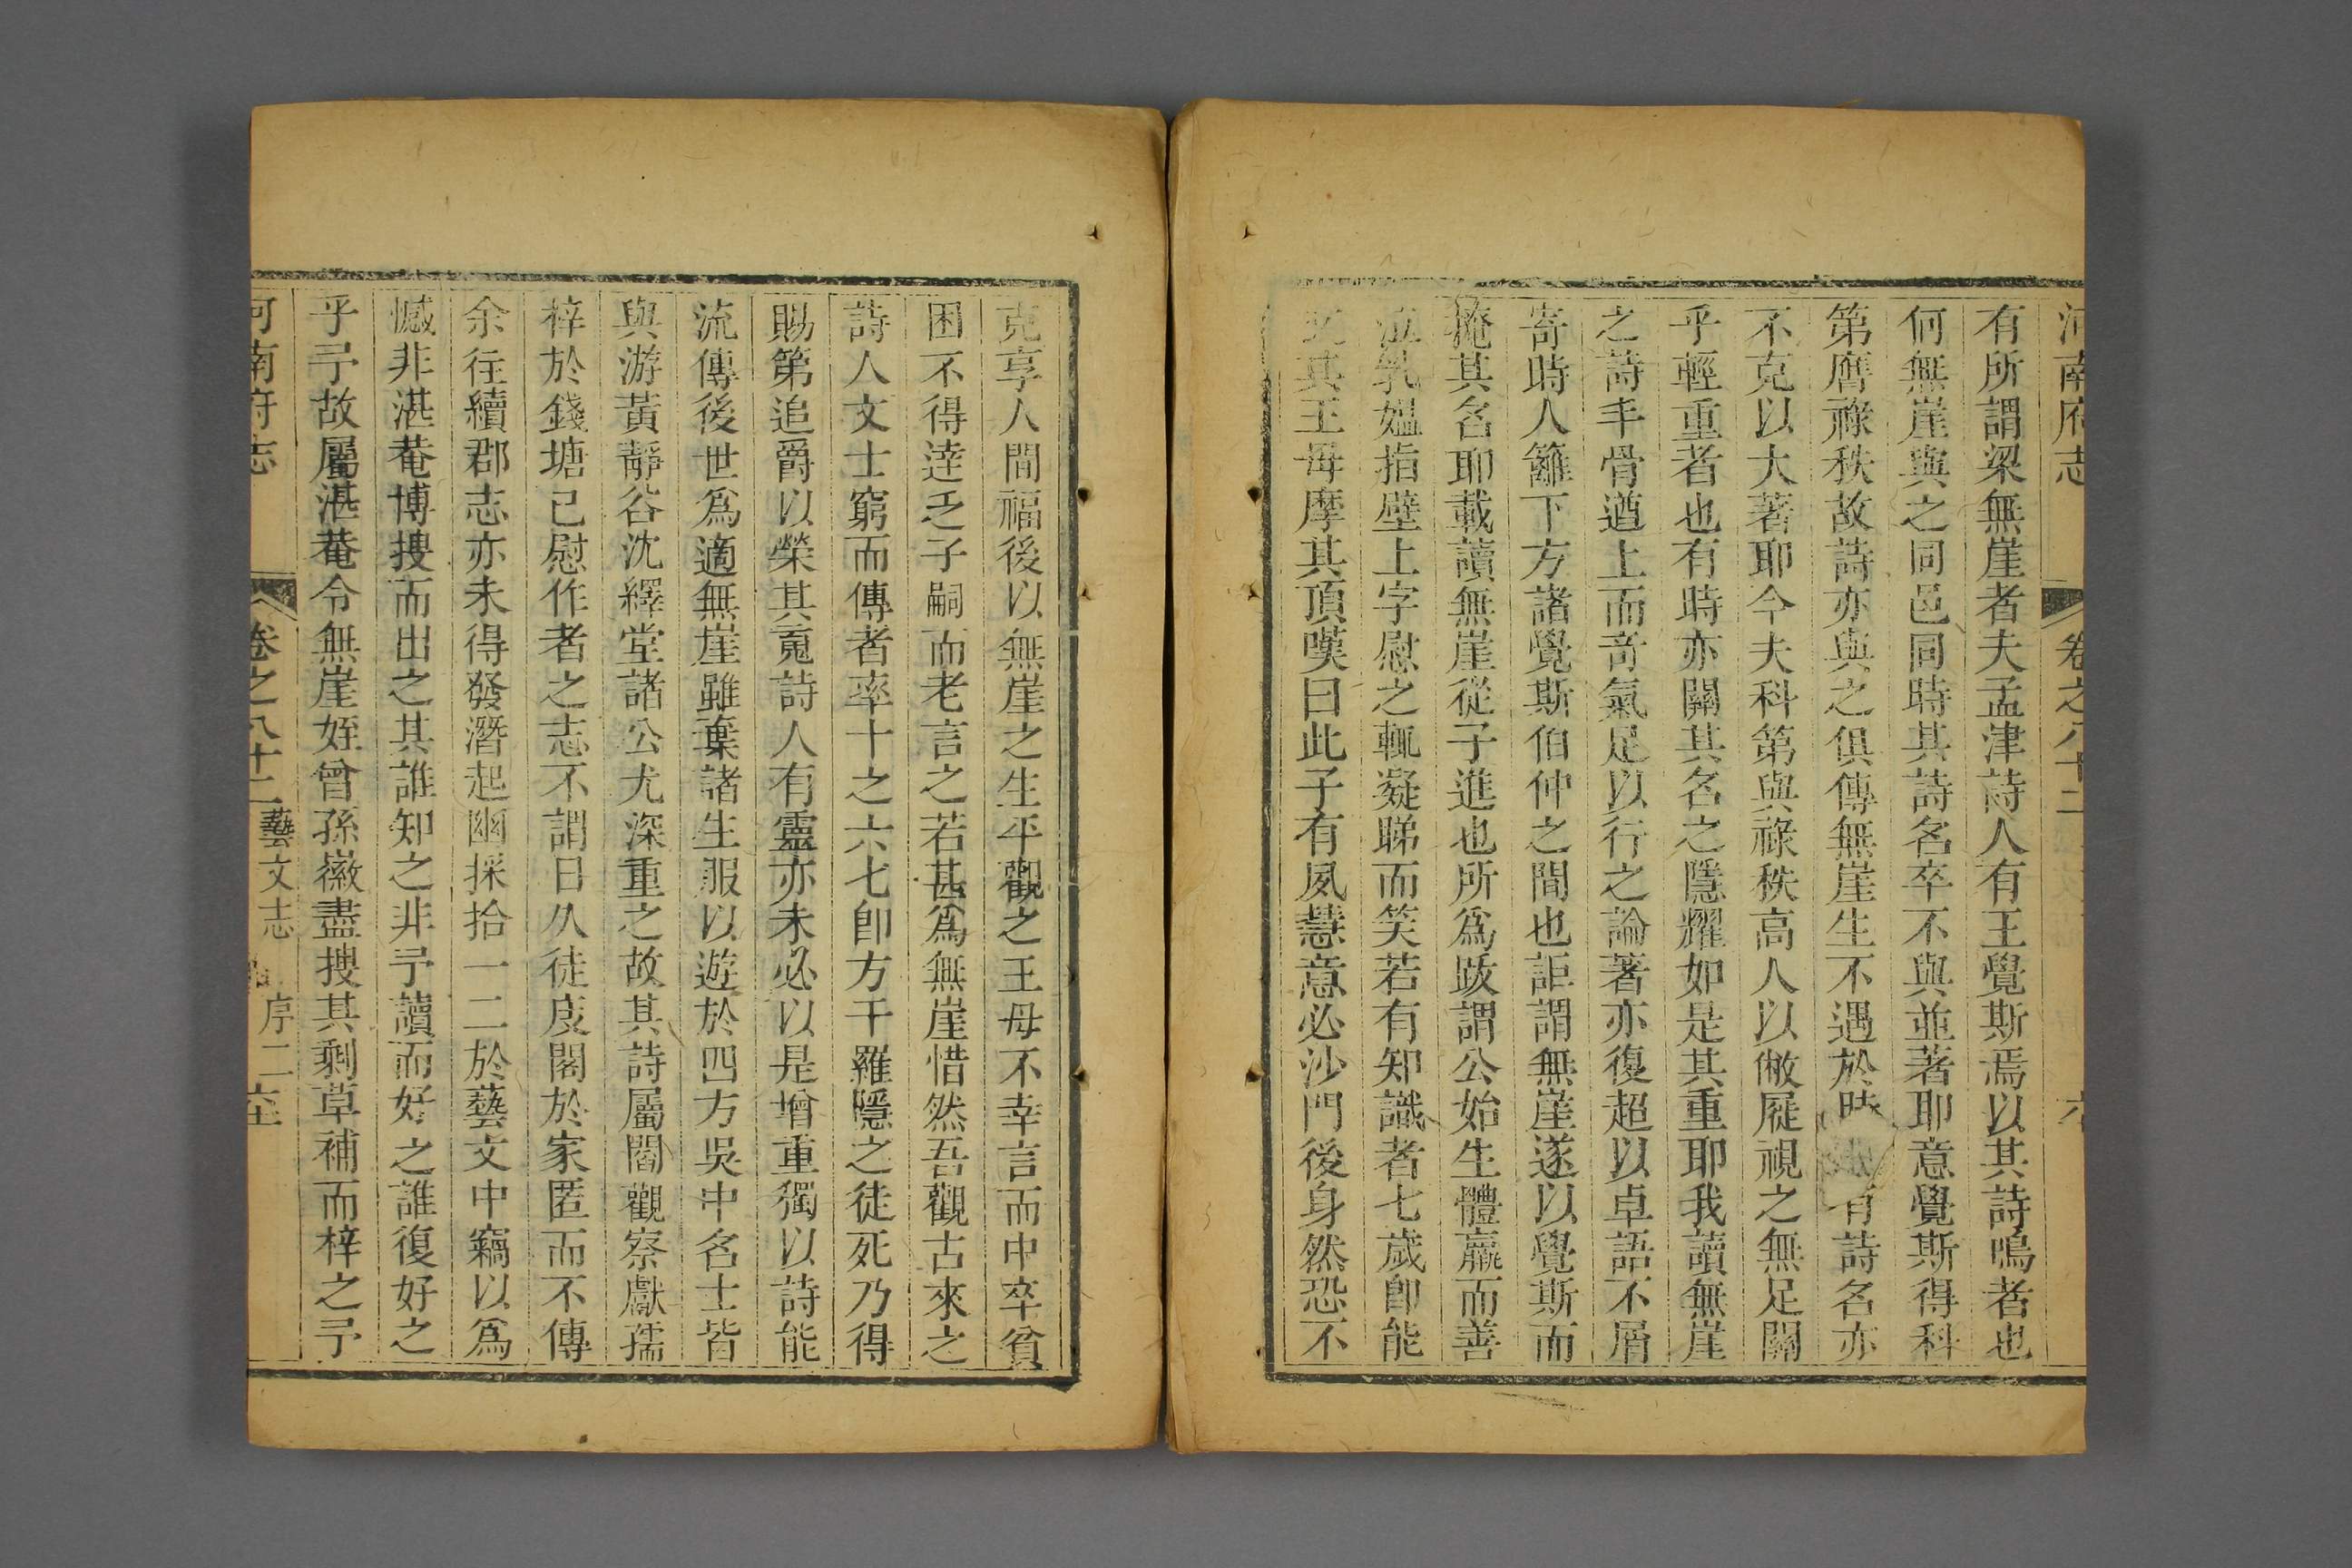 河南府志 卷之八十二
有所謂梁無崖者夫孟津詩人有王覺斯焉以其詩鳴者也
何無崖與之同邑同時其詩名卒不與並著耶意覺斯得科
第膺祿秩故詩亦與之俱傳無崖生不遇於時 有詩名亦
不克以大著耶今夫科第與祿秩高人以敝屣視之無足關
乎輕重者也有時亦關其名之隱耀如是其重耶我讀無崖
之詩丰骨遒上而奇氣足以行之論著亦復超以卓語不屑
寄時人籬下方諸覺斯伯仲之間也詎謂無崖遂以覺斯而
掩其名耶載讀無崖從子進也所爲跋謂公始生體羸而善
泣乳媼指壁上字慰之輒凝睇而笑若有知識者七歲卽能
文其王母摩其頂嘆曰此子有夙慧意必沙門後身然恐不
克享人間福後以無崖之生平觀之王母不幸言而中卒貧
困不得達乏子嗣而老言之若甚爲無崖惜然吾觀古來之
詩人文士窮而傳者率十之六七卽方干羅隱之徒死乃得
賜第追爵以榮其䰟詩人有靈亦未必以是增重獨以詩能
流傳後世爲適無崖雖棄諸生服以遊於四方吳中名士皆
與游黃靜谷沈繹堂諸公尤深重之故其詩屬閻觀察獻孺
梓於錢塘已慰作者之志不謂日久徒庋閣於家匿而不傳
余往續郡志亦未得發潛起幽採拾一二於藝文中竊以爲
憾非湛菴博搜而出之其誰知之非予讀而好之誰復好之
乎予故屬湛菴令無崖姪曾孫徽盡搜其剩草補而梓之予
河南府志 卷之八十二 藝文志 序二 六十